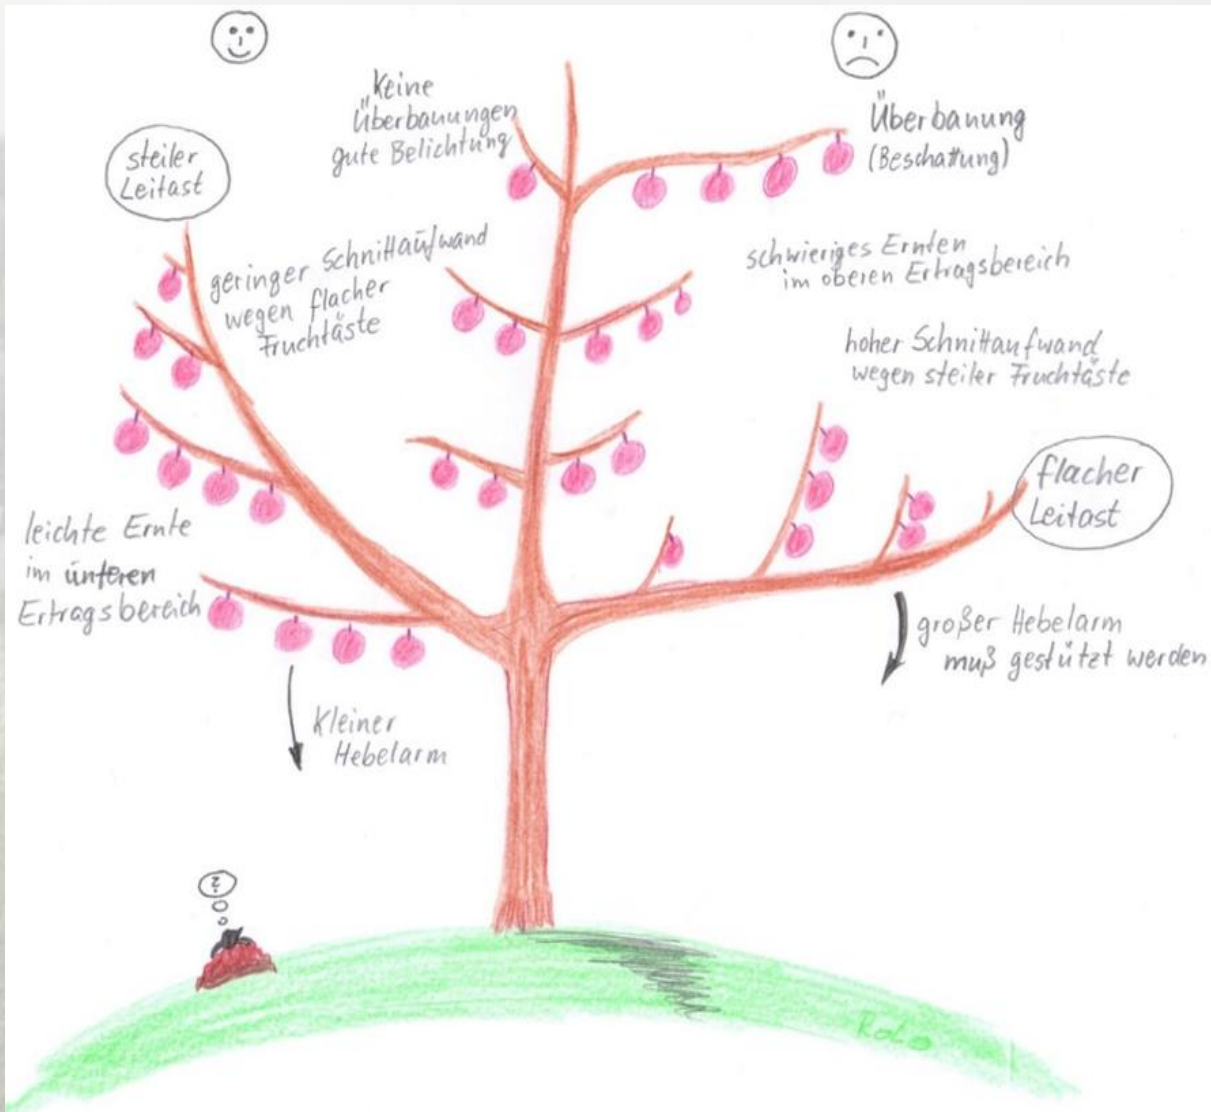 Keine
Überbauungen
gute Belichtung
steiler
Leitast
geringer Schnittaufwand
wegen flacher
Fruchtäste
leichte Ernte
im unteren
Ertragsbereich
Kleiner
Hebelarm
?
Überbauung
(Beschattung)
schwieriges Ernten
im oberen Ertragsbereich
hoher Schnittaufwand
wegen steiler Fruchtäste
flacher
Leitast
großer Hebelarm
muß gestützt werden
RoLo